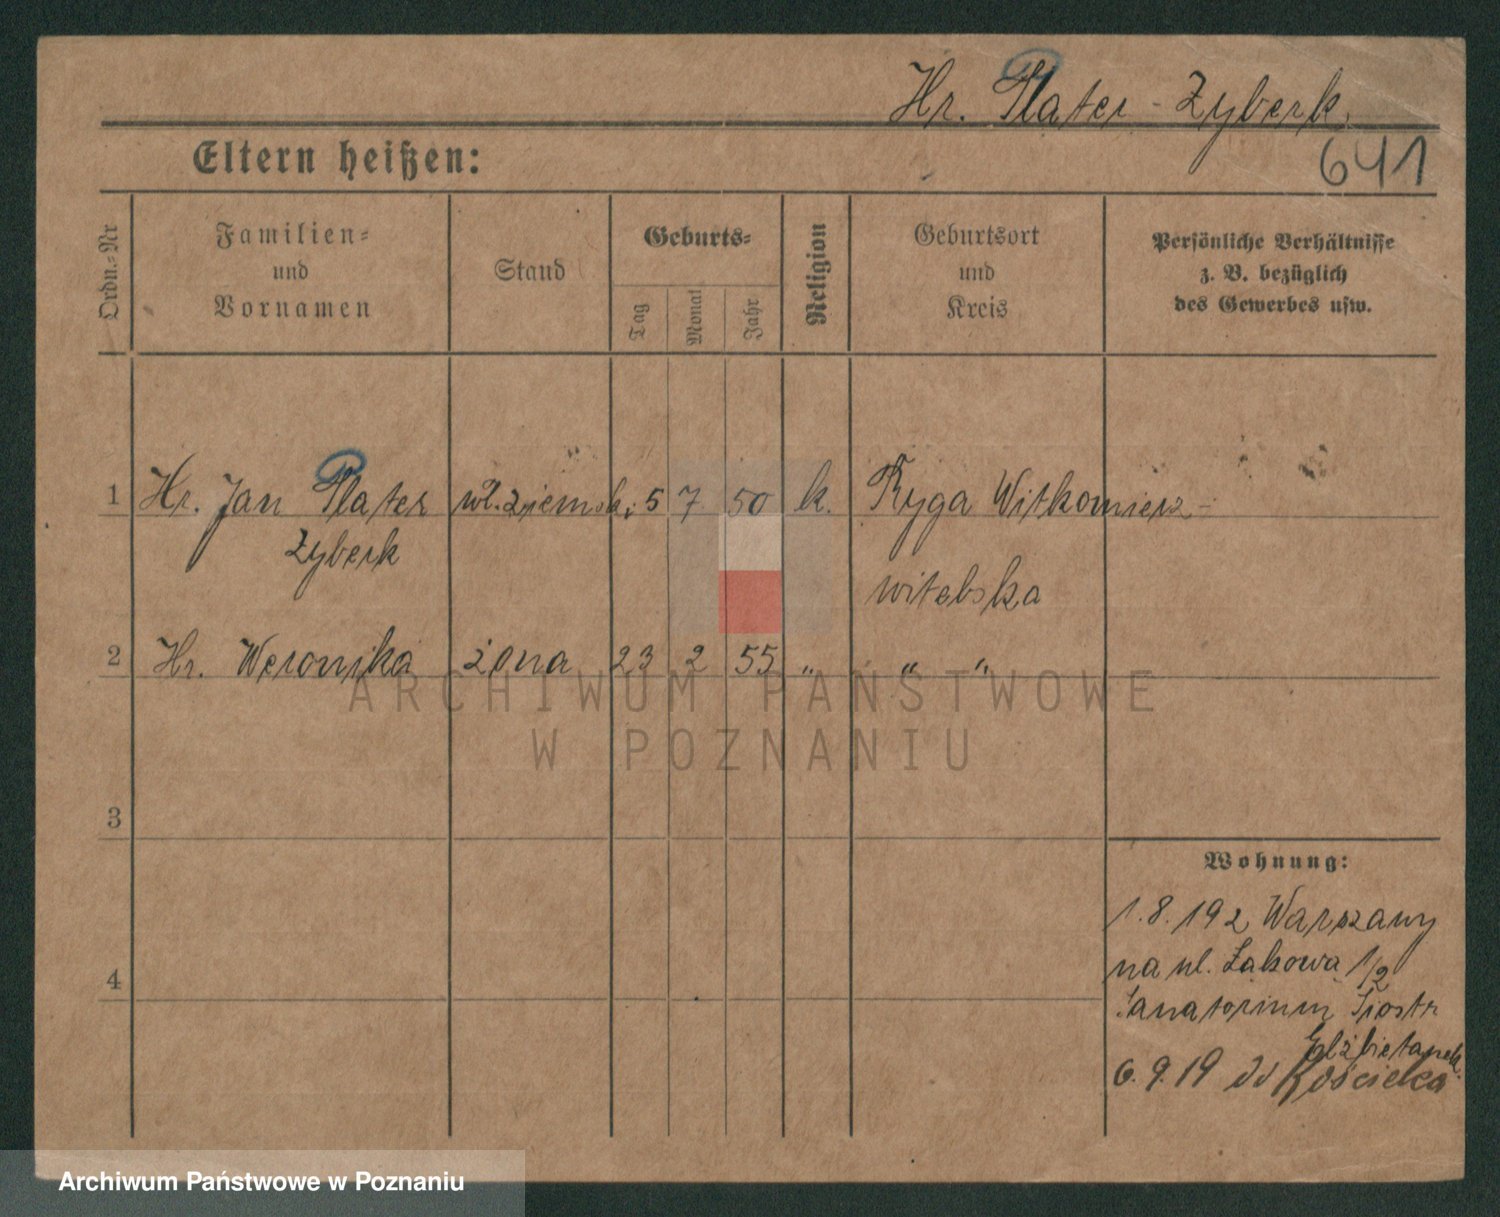 Hr. Plater-Zyberk.
641
Eltern heißen:
Ordn.-Nr
Familien-
und
Vornamen
Stand
Geburts-
Tag
Monat
Jahr
Religion
Geburtsort
und
Kreis
Persönliche Verhältnisse
z. B. bezüglich
des Gewerbes usw.
1 Hr. Jan Plater wł. ziemsk. 5 7. 50 k. Ryga Witkomierz-
Zyberk
witebska
2 Hr. Weronika żona 23 2 55 " " "
ARCHIWUM PAŃSTWOWE
W POZNANIU
3
Wohnung:
1.8.192 Warszawy
na ul. Łakowa 1/2
Sanatorium Siostr
Elżbietanek.
6.9.19 do Kościelca
4
Archiwum Państwowe w Poznaniu